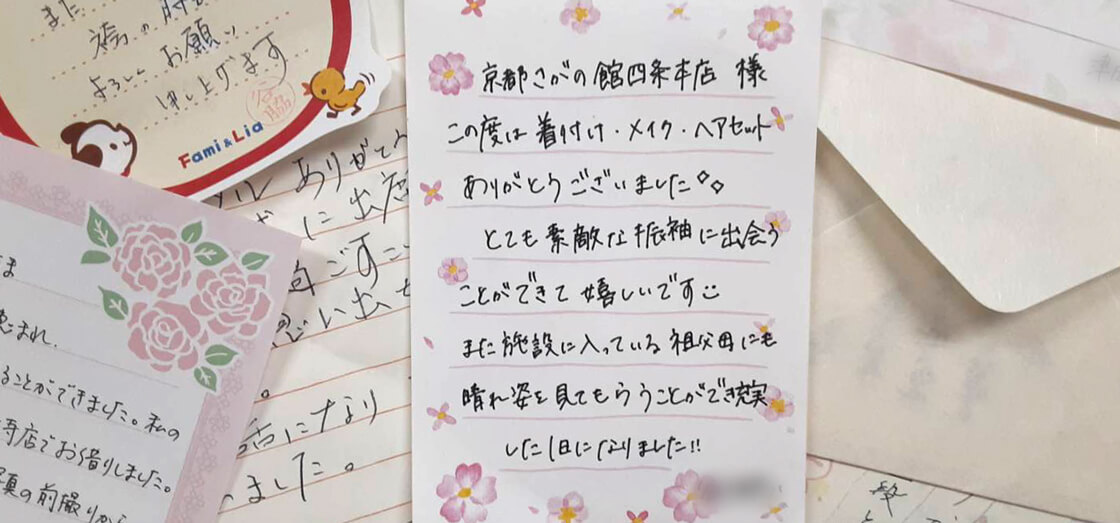 また
よろしくお願い
申し上げます
谷脇
Fami&Lia
京都さがの館四条本店 様
この度は着付け・メイク・ヘアセット
ありがとうございました
とても素敵な振袖に出会う
ことができて嬉しいです
また施設に入っている祖父母にも
晴れ姿を見てもらうことができ充実
した1日になりました!!
ま
恵まれ、
ることができました。私の
店でお借りしました。
真の前撮りから
ありがとう
に出店
ごすこ
い出せ
。
になり
ました。
私